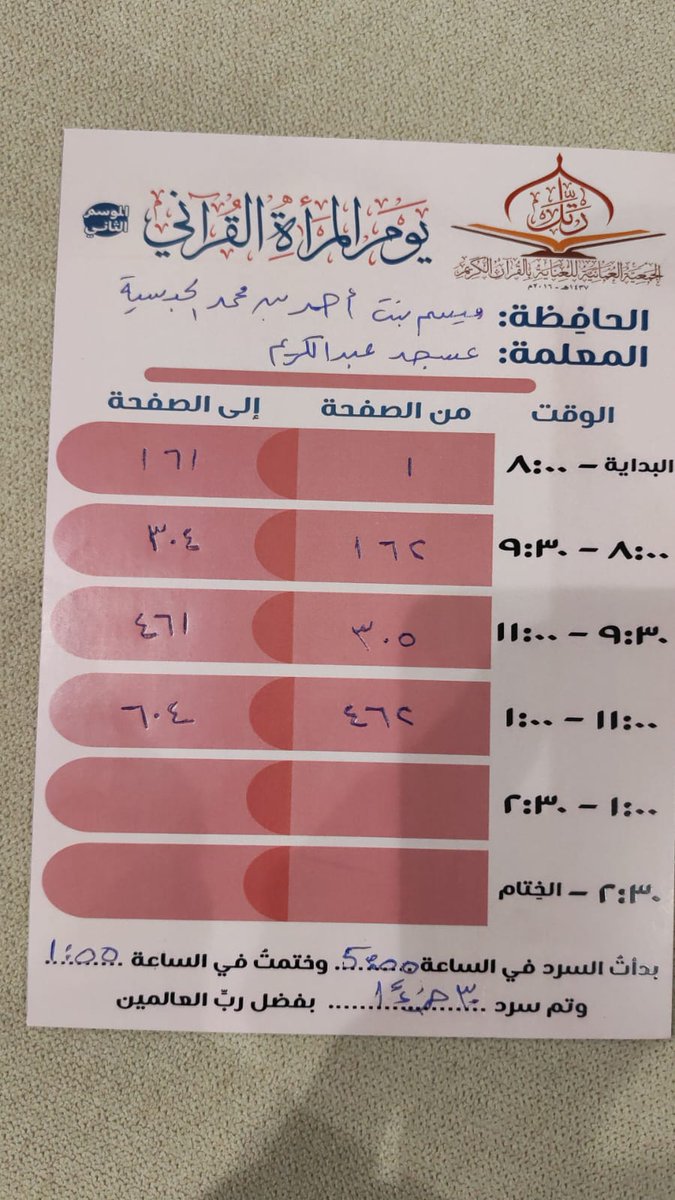 رتل
الجمعية العمانية للعناية بالقرآن الكريم
١٤٣٧هـ - ٢٠١٦م
يَومُ المرأةِ القُرآني
الموسم الثاني
الحافِظة: ميسم بنت أحمد بن محمد الحبسية
المعلمة: عسجد عبدالكريم
الوقت من الصفحة إلى الصفحة
البداية – ٨:٠٠ ١ ١٦١
٨:٠٠ – ٩:٣٠ ١٦٢ ٣٠٤
٩:٣٠ – ١١:٠٠ ٣٠٥ ٤٦١
١١:٠٠ – ١:٠٠ ٤٦٢ ٦٠٤
١:٠٠ – ٢:٣٠
٢:٣٠ – الخِتام
بدأتُ السرد في الساعة 5:00 وختمتُ في الساعة
وتم سرد ٣٠ جزءًا بفضل ربِّ العالمين